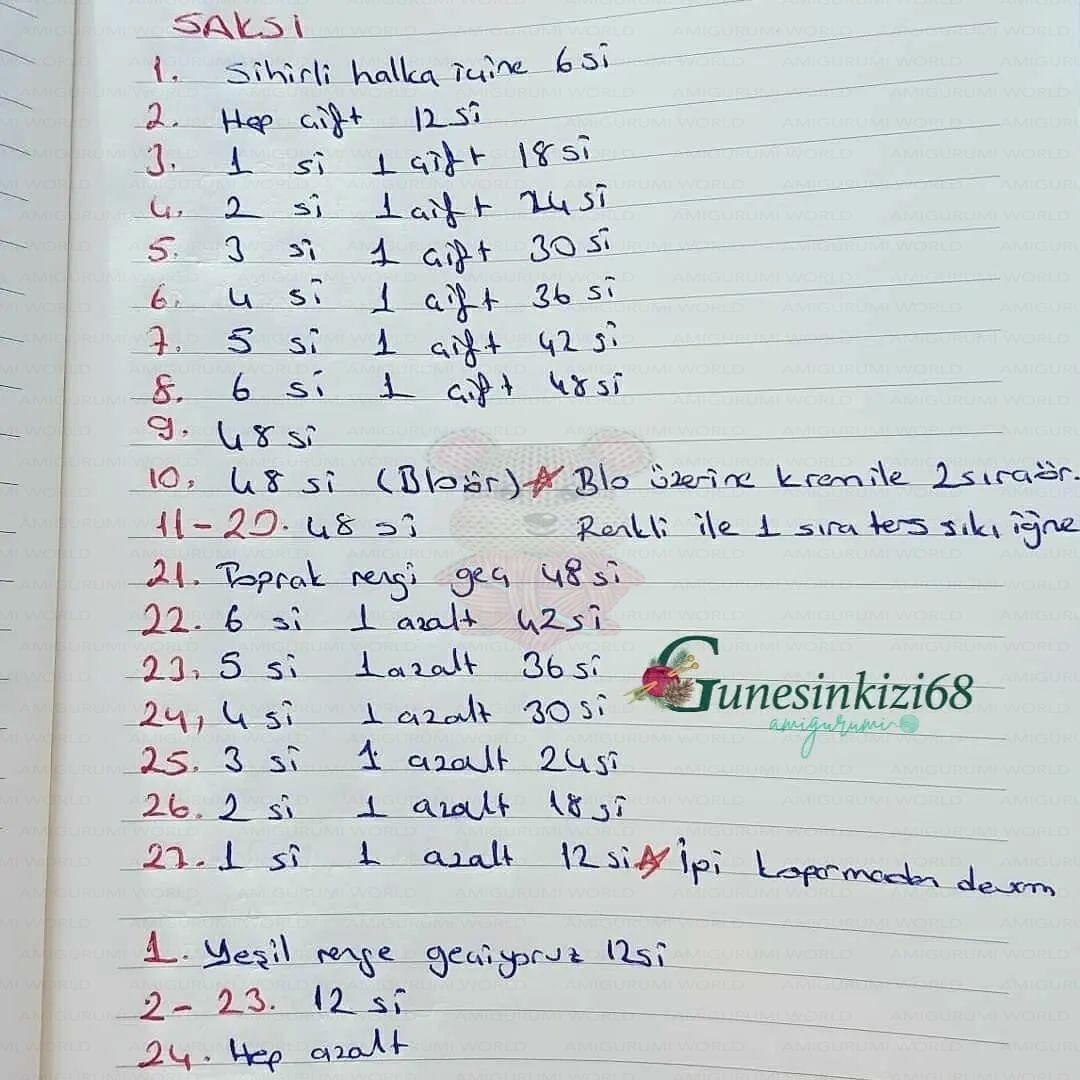 SAKSI
1. Sihirli halka içine 6 si
2. Hep çift 12 si
3. 1 si 1 çift 18 si
4. 2 si 1 çift 24 si
5. 3 si 1 çift 30 si
6. 4 si 1 çift 36 si
7. 5 si 1 çift 42 si
8. 6 si 1 çift 48 si
9. 48 si
10. 48 si (Blo ör) ☆ Blo üzerine krem ile 2 sıra ör.
11-20. 48 si Renkli ile 1 sıra ters sıkı iğne
21. Toprak rengi geç 48 si
22. 6 si 1 azalt 42 si
23. 5 si 1 azalt 36 si
24, 4 si 1 azalt 30 si
25. 3 si 1 azalt 24 si
26. 2 si 1 azalt 18 si
27. 1 si 1 azalt 12 si ☆ İpi koparmadan devam
Gunesinkizi68
amigurumi
1. Yeşil renge geçiyoruz 12 si
2-23. 12 si
24. Hep azalt
AMIGURUMI WORLD